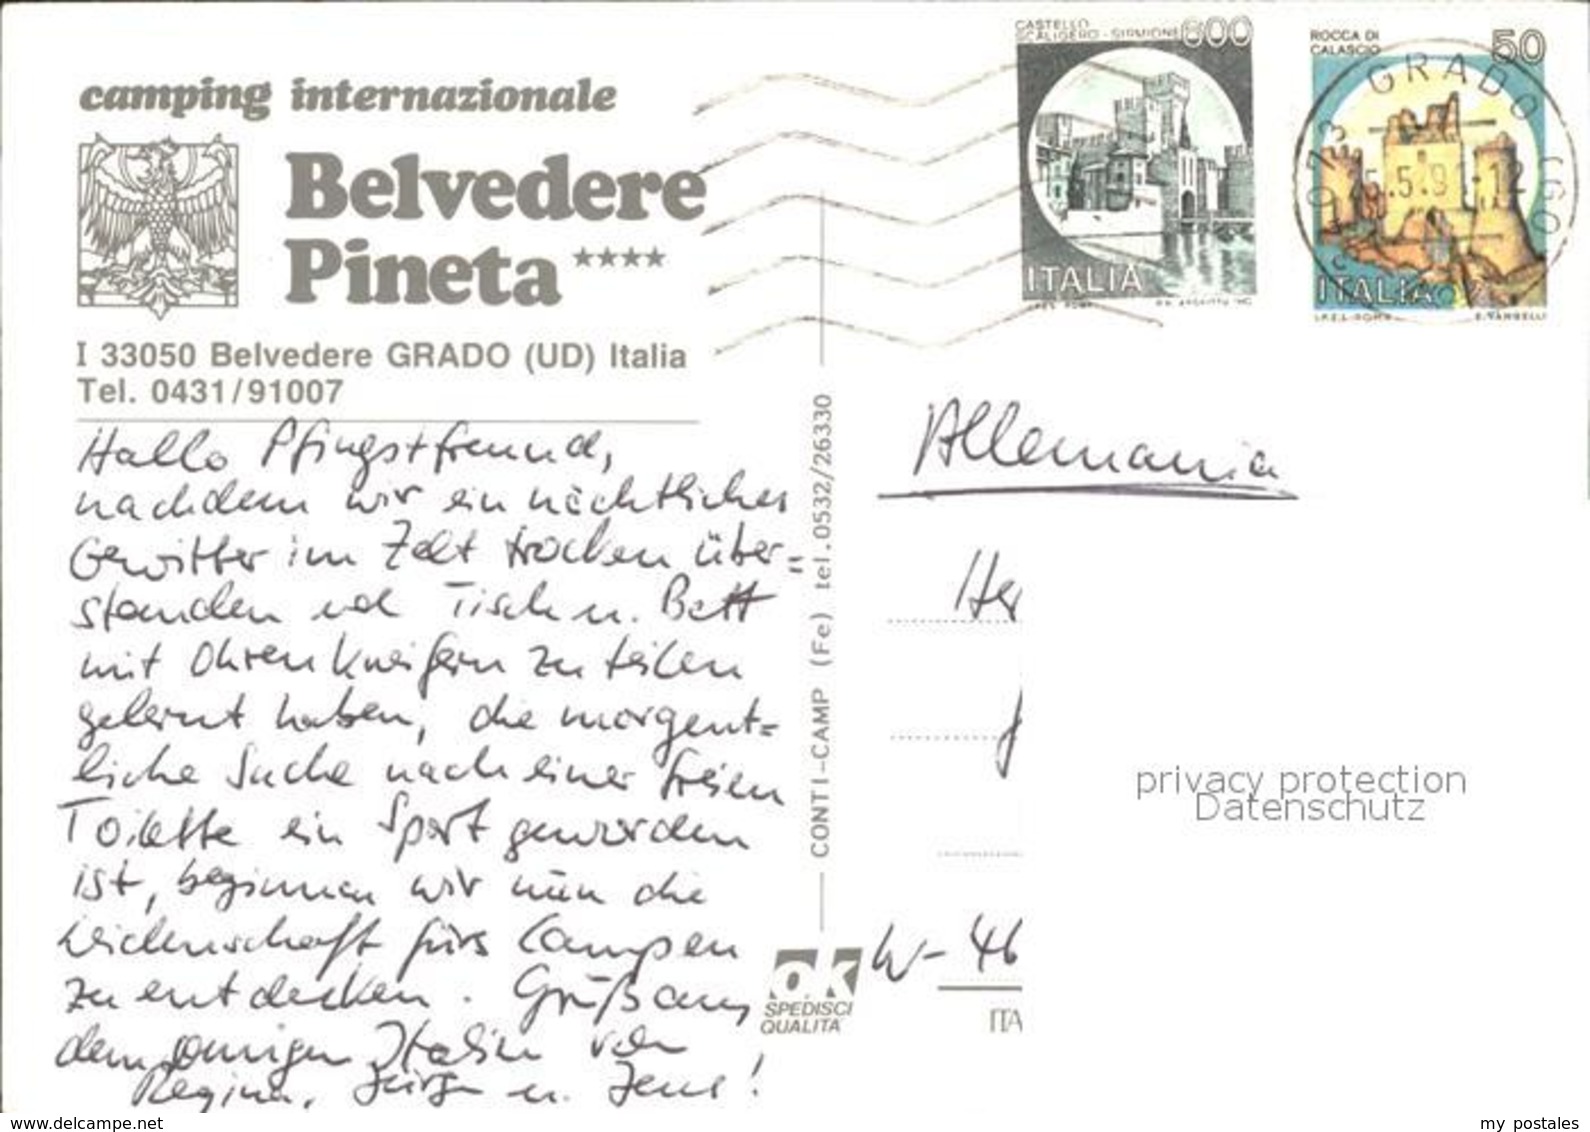 camping internazionale
Belvedere
Pineta ****
I 33050 Belvedere GRADO (UD) Italia
Tel. 0431/91007
Hallo Pfingstfreund,
nachdem wir ein nächtliches
Gewitter im Zelt trocken über=
standen und Tisch u. Bett
mit Ohrenkneifern zu teilen
gelernt haben, die morgent=
liche Suche nach einer freien
Toilette ein Sport geworden
ist, beginnen wir nun die
Leidenschaft fürs Campen
zu entdecken. Gruß aus
dem sonnigen Italien von
Regina, Jürgen u. Jens!
CONTI-CAMP (Fe) tel. 0532/26330
o.k
SPEDISCI
QUALITA'
CASTELLO
SCALIGERO - SIRMIONE 600
ITALIA
I.P.Z.S. ROMA
ROCCA DI
CALASCIO 50
ITALIA
I.P.Z.S. ROMA E. VANGELLI
GRADO (GO)
Allemania
Her
W- 46
ITA
privacy protection
Datenschutz
delcampe.net
my_postales